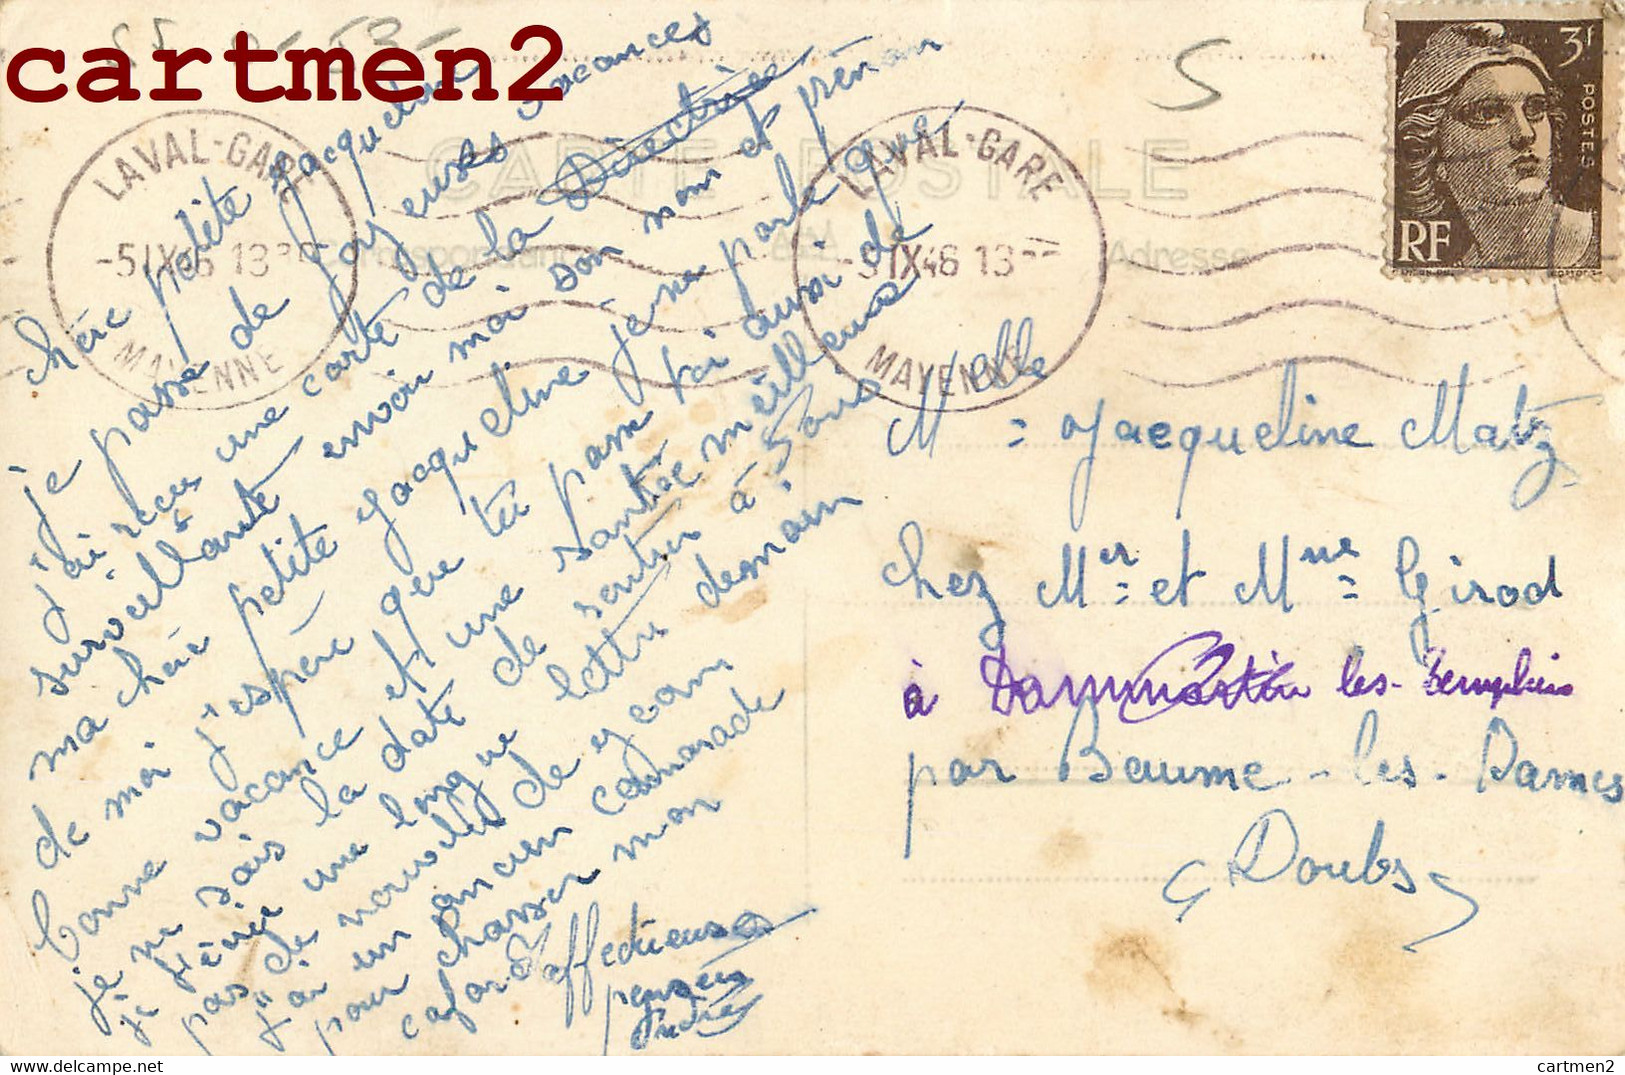 cartmen2
CARTE POSTALE
Correspondance
Adresse
LAVAL-GARE
-5 IX 46 13
MAYENNE
LAVAL-GARE
-5 IX 46 13
MAYENNE
3F
POSTES
RF
S
chère petite Jacqueline
je passe de joyeuses vacances
j'ai reçu une carte de la Directrice
surveillante envoi moi son nom et prénom
ma chère petite Jacqueline je ne parle que
de moi j'espère que tu passe toi aussi de
bonne vacance et une santée meilleuse
je ne sais la date de rentrer à Paris
je t'écrie une longue lettre demain
pas de nouvelle de
j'ai un ancien camarade
pour chasser mon
cafard affectueuses
pensées
André
M elle = Jacqueline Matz
chez Mer = et Mme = Girod
à Dammartin les-Templiers
par Baume-les-Dames
Doubs
cartmen2